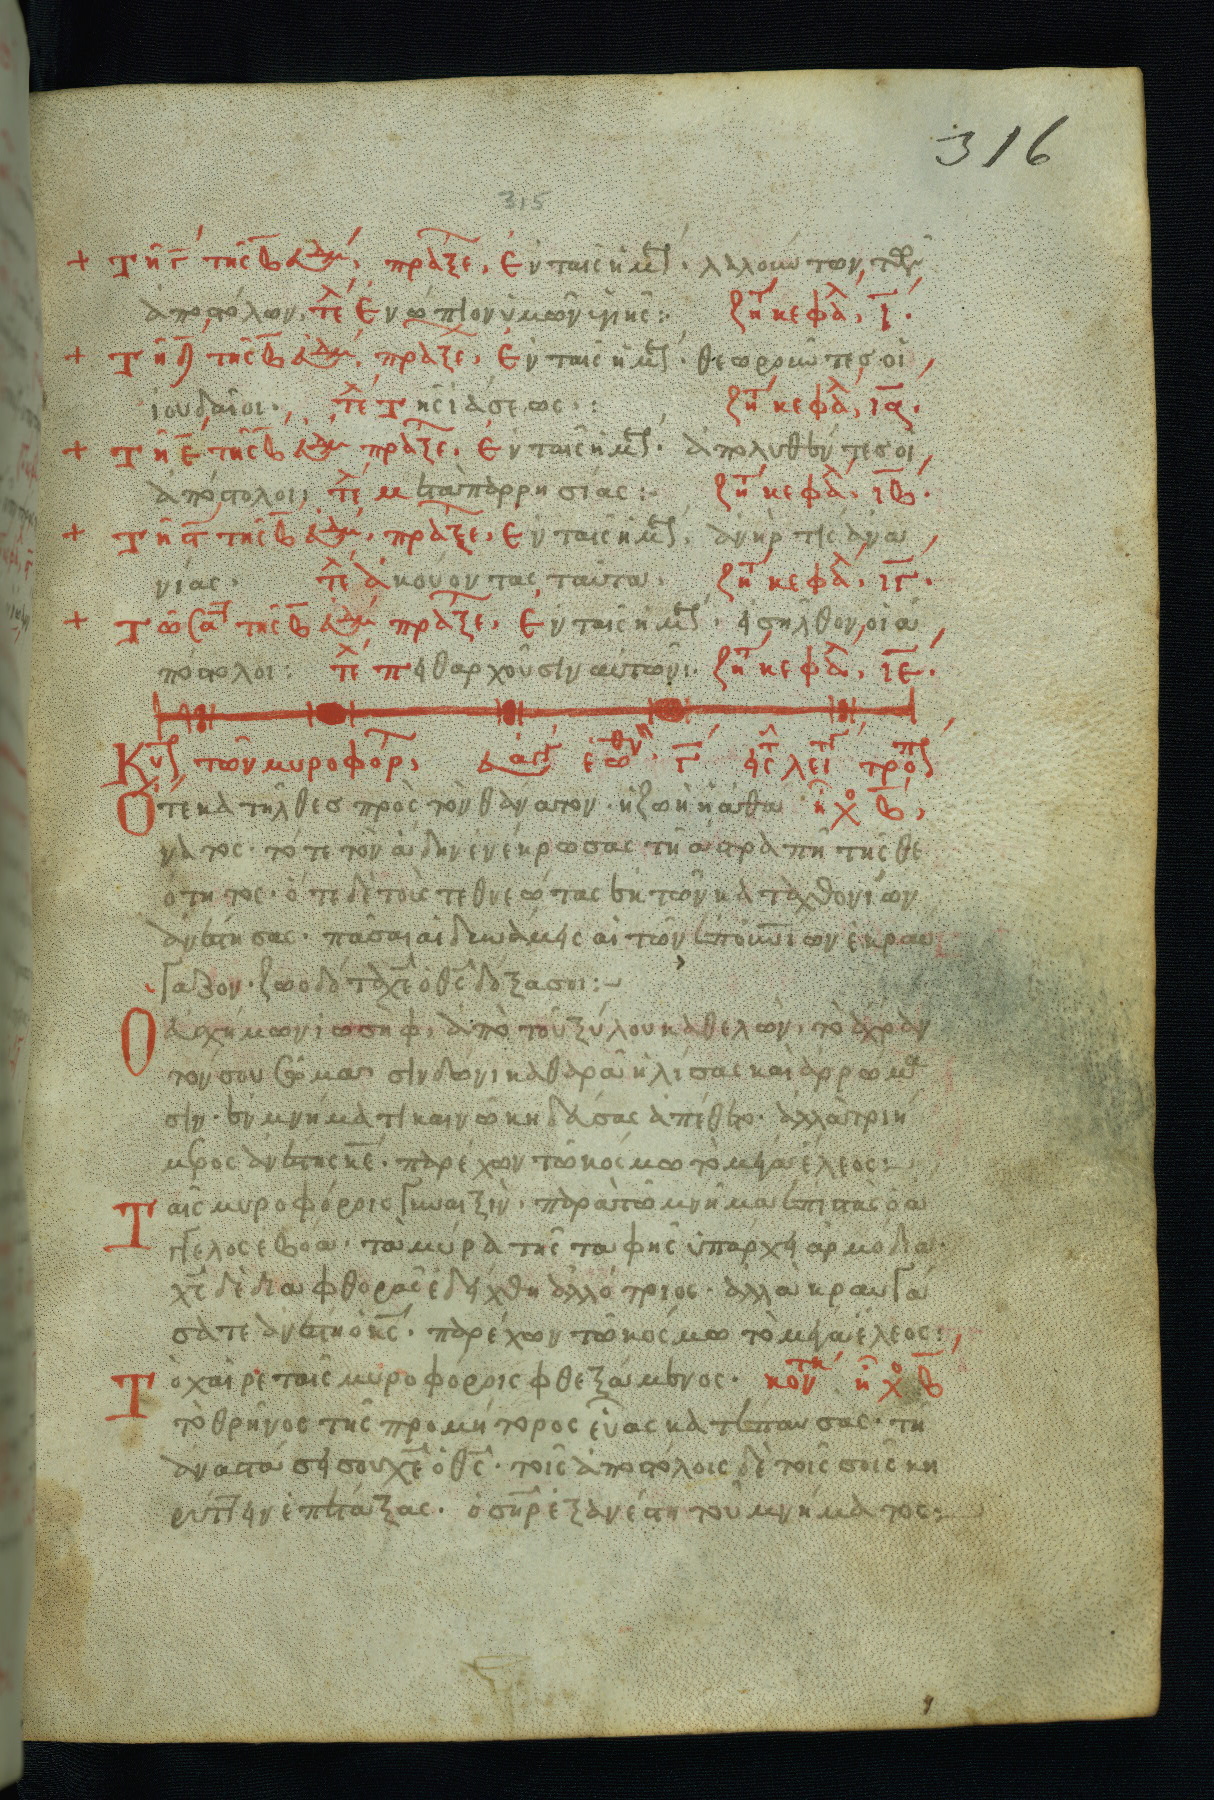 316
315
+ Τῆ γ τῆς β ἑβδομ, πράξε, Ἐν ταῖς ἡμ. λαλούντων τῶν
ἀποστόλων, τε Ἐνώπιον ὑμῶν ὑγιής: ζτ κεφά, ι.
+ Τῆ δ τῆς β ἑβδομ, πράξε, Ἐν ταῖς ἡμ. θεωροῦντες οἱ
ἰουδαῖοι. τε Τῆς ἰάσεως: ζτ κεφά, ια.
+ Τῆ ε τῆς β ἑβδομ πράξε, Ἐν ταῖς ἡμ. ἀπολυθέντες οἱ
ἀπόστολοι, τε μετὰ παρρησίας: ζτ κεφά, ιβ.
+ Τῆ ς τῆς β ἑβδομ, πράξε, Ἐν ταῖς ἡμ, ἀνήρ τις ἀνα
νίας, τε ἀκούοντας ταῦτα. ζτ κεφά, ιγ.
+ Τῶ σα τῆς β ἑβδομ πράξε, Ἐν ταῖς ἡμ, εἰσῆλθον οἱ ἀ
πόστολοι: τε πειθαρχοῦσιν αὐτῶ: ζτ κεφά, ιε.
Κυ τῶν μυροφόρ, ἑωθν γ εἰς λει τροπ
Ὅτε κατῆλθες πρὸς τὸν θάνατον. ἡ ζωὴ ἡ ἀθά ἦχο β,
νατος. τότε τὸν ἅδην ἐνέκρωσας τῆ ἀστραπῆ τῆς θε
ότητος. ὅτε δὲ τοὺς τεθνεῶτας ἐκ τῶν καταχθονίων
ἀνέστησας. πᾶσαι αἱ δυνάμεις αἱ τῶν ἐπουνίων ἐκραύ
γαζον. ζωοδότα χε ὁ θς δόξα σοι:
Ὁ εὐσχήμων ἰωσὴφ, ἀπὸ τοῦ ξύλου καθελὼν, τὸ ἄχραν
τόν σου σῶμα. σινδόνι καθαρᾶ εἱλίσας καὶ ἀρρώμα
σιν. ἐν μνήματι καινῶ κηδεύσας ἀπέθετο. ἀλλὰ τριή
μερος ἀνέστης κε. παρέχων τῶ κόσμω τὸ μέγα ἔλεος:
Ταῖς μυροφόροις γυναιξὶν. παρὰ τῶ μνῆμα ἐπιστὰς ὁ ἄ
γγελος ἐβόα. τὰ μύρα τῆς ταφῆς ὑπάρχει ἁρμόδια.
χς δὲ διαφθορᾶς ἐδείχθη ἀλλότριος. ἀλλὰ κραυγά
σατε ἀνέστη ὁ κς. παρέχων τῶ κόσμω τὸ μέγα ἔλεος:
Τὸ χαῖρε ταῖς μυροφόροις φθεγξάμενος. κον ἦχο β
τὸ θρῆνος τῆς προμήτορος εὔας κατέπαυσας. τῆ
ἀναστάσει σου χε ὁ θς. τοῖς ἀποστόλοις δὲ τοῖς σοῖς κη
ρύττειν ἐπέταξας. ὁ σηρ ἐξανέστη τοῦ μνήματος: